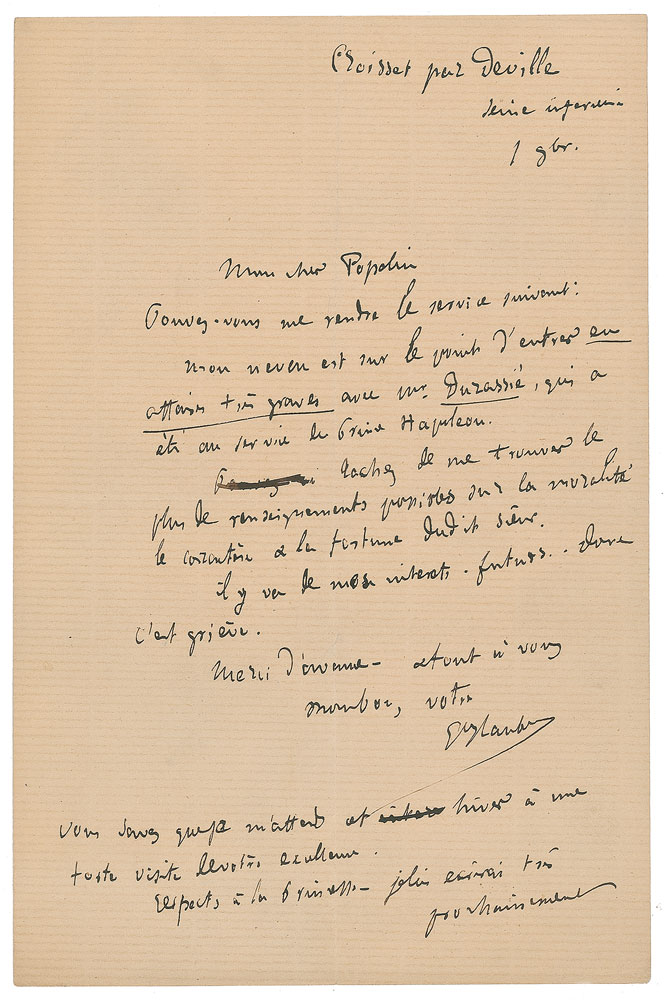 Croisset par Deville
Seine inférieure
1 9br.
Mon cher Popelin
Pouvez-vous me rendre le service suivant:
mon neveu est sur le point d'entrer en
affaires très graves avec mr. Durassié, qui a
été au service de Prince Napoléon.
tachez de me trouver le
plus de renseignements possibles sur la moralité
le caractère & la fortune dudit sieur.
il y va de mes interets. futurs.. donc
c'est griève.
Merci d'avance – & tout à vous
mon bon, votre
Gve Flaubert
vous savez que je m'attends cet hiver à une
forte visite de votre excellence.
Respects à la Princesse – je lui ecrirai très
prochainement